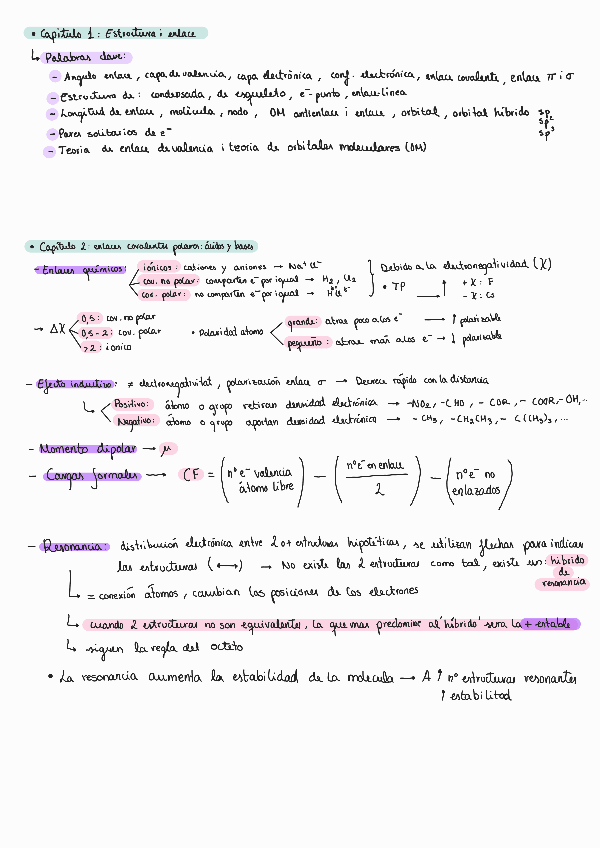 • Capítulo 1: Estructura i enlace
↳ Palabras clave:
– Angulo enlace, capa de valencia, capa electrónica, conf. electrónica, enlace covalente, enlace π i σ
– Estructura de: condensada, de esqueleto, e⁻ punto, enlace-línea
– Longitud de enlace, molécula, nodo, OM antienlace i enlace, orbital, orbital híbrido sp
sp²
sp³
– Pares solitarios de e⁻
– Teoria de enlace de valencia i teoria de orbitales moleculares (OM)
• Capítulo 2: enlaces covalentes polares: ácidos y bases
– Enlaces químicos: iónicos: cationes y aniones → Na⁺Cl⁻
cov. no polar: comparten e⁻ por igual → H₂, Cl₂
cov. polar: no comparten e⁻ por igual →
Debido a la electronegatividad (χ)
• TP → ↑ + χ: F
– χ: Cs
→ Δχ 0,5: cov. no polar
0,5 - 2: cov. polar
>2: iónico
• Polaridad átomo grande: atrae poco a los e⁻ → ↑ polarizable
pequeño: atrae más a los e⁻ → ↓ polarizable
– Efecto inductivo: ≠ electronegativitat, polarización enlace σ → Decrece rápido con la distancia
↳ Positivo: átomo o grupo retiran densidad electrónica → -NO₂, -CHO, -COR, -COOR, -OH,..
Negativo: átomo o grupo aportan densidad electrónica → -CH₃, -CH₂CH₃, -C(CH₃)₃,...
– Momento dipolar → μ
– Cargas formales → CF = (nº e⁻ valencia átomo libre) – (nº e⁻ en enlace / 2) – (nº e⁻ no enlazados)
– Resonancia: distribución electrónica entre 2 o + estructuras hipotéticas, se utilizan flechas para indicar
las estructuras (↔) → No existe las 2 estructuras como tal, existe un: híbrido
de
resonancia
↳ = conexión átomos, cambian las posiciones de los electrones
↳ cuando 2 estructuras no son equivalentes, la que mas predomine al 'híbrido' sera la + estable
↳ siguen la regla del octeto
• La resonancia aumenta la estabilidad de la molecula → A ↑ nº estructuras resonantes
↑ estabilitad